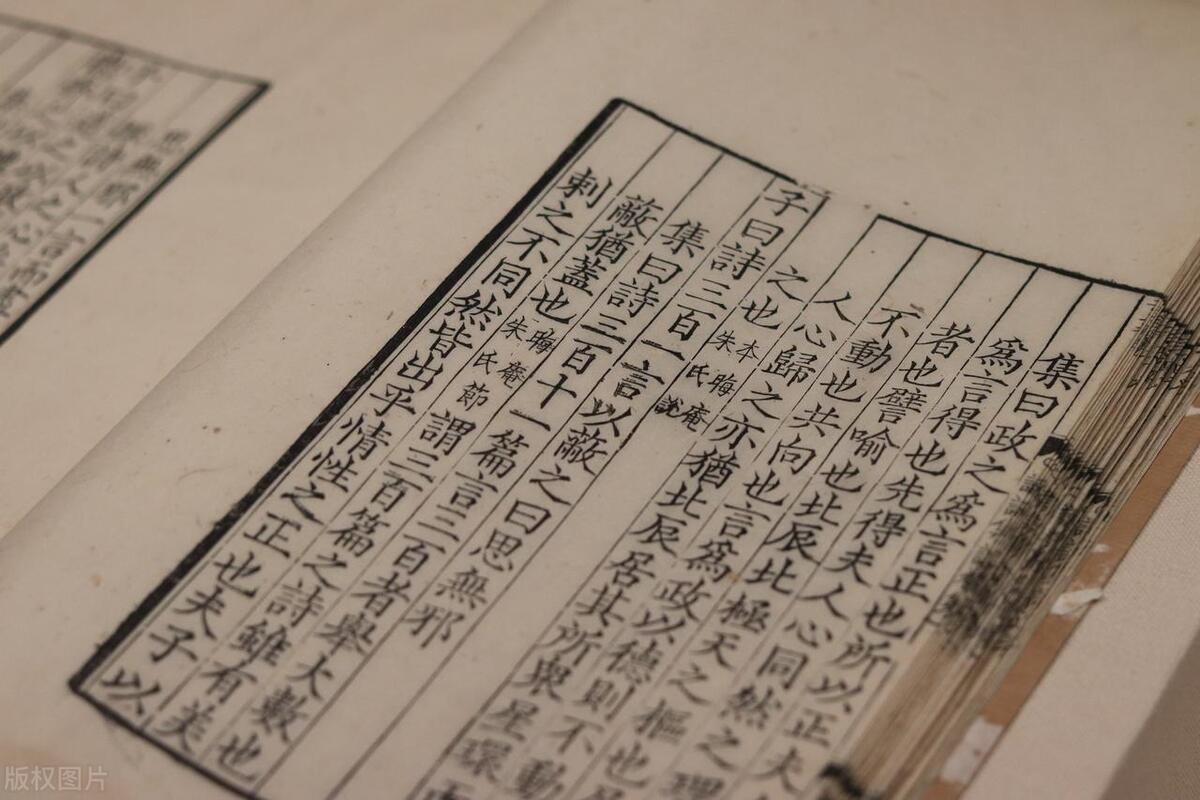 集曰政之爲言正也所以正夫人
爲言得也先得夫人心同然之理
者也譬喻也北辰北極天之樞也居
不動也共向也言爲政以德則不動
人心歸之亦猶北辰居其所衆星環而
之也本晦庵朱氏說
子曰詩三百一言以蔽之曰思無邪
集曰詩三百十一篇言三百者舉大數也
蔽猶蓋也晦庵朱氏節謂三百篇之詩雖有美
刺之不同然皆出乎情性之正也夫子以
版权图片